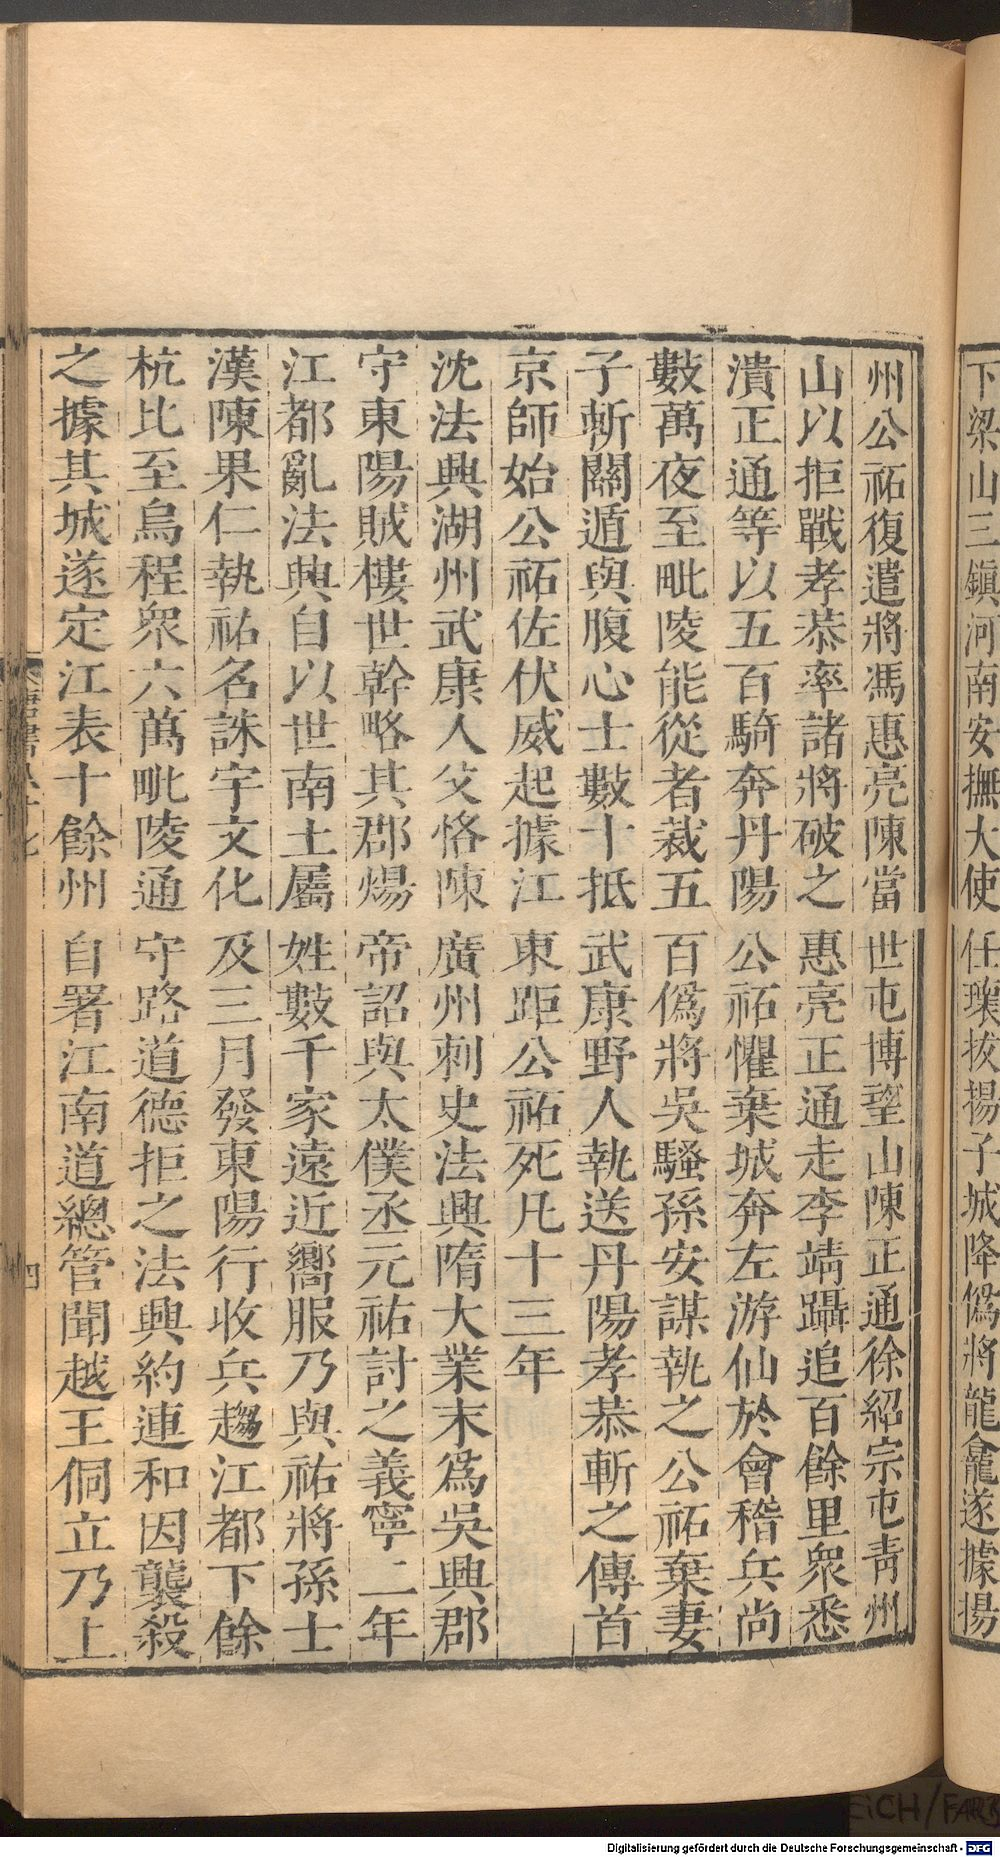 下梁山三鎮河南安撫大使任瓌拔揚子城降僞將龍龕遂據揚
州公祏復遣將馮惠亮陳當世屯博望山陳正通徐紹宗屯青州
山以拒戰孝恭率諸將破之惠亮正通走李靖躡追百餘里衆悉
潰正通等以五百騎奔丹陽公祏懼棄城奔左游仙於會稽兵尚
數萬夜至毗陵能從者裁五百僞將吳騷孫安謀執之公祏棄妻
子斬關遁與腹心士數十抵武康野人執送丹陽孝恭斬之傳首
京師始公祏佐伏威起據江東距公祏死凡十三年
沈法興湖州武康人父恪陳廣州刺史法興隋大業末爲吳興郡
守東陽賊樓世幹略其郡煬帝詔與太僕丞元祐討之義寧二年
江都亂法興自以世南土屬姓數千家遠近嚮服乃與祐將孫士
漢陳果仁執祐名誅宇文化及三月發東陽行收兵趨江都下餘
杭比至烏程衆六萬毗陵通守路道德拒之法興約連和因襲殺
之據其城遂定江表十餘州自署江南道總管聞越王侗立乃上
唐書八十七
四
EICH/FARB
Digitalisierung gefördert durch die Deutsche Forschungsgemeinschaft - DFG